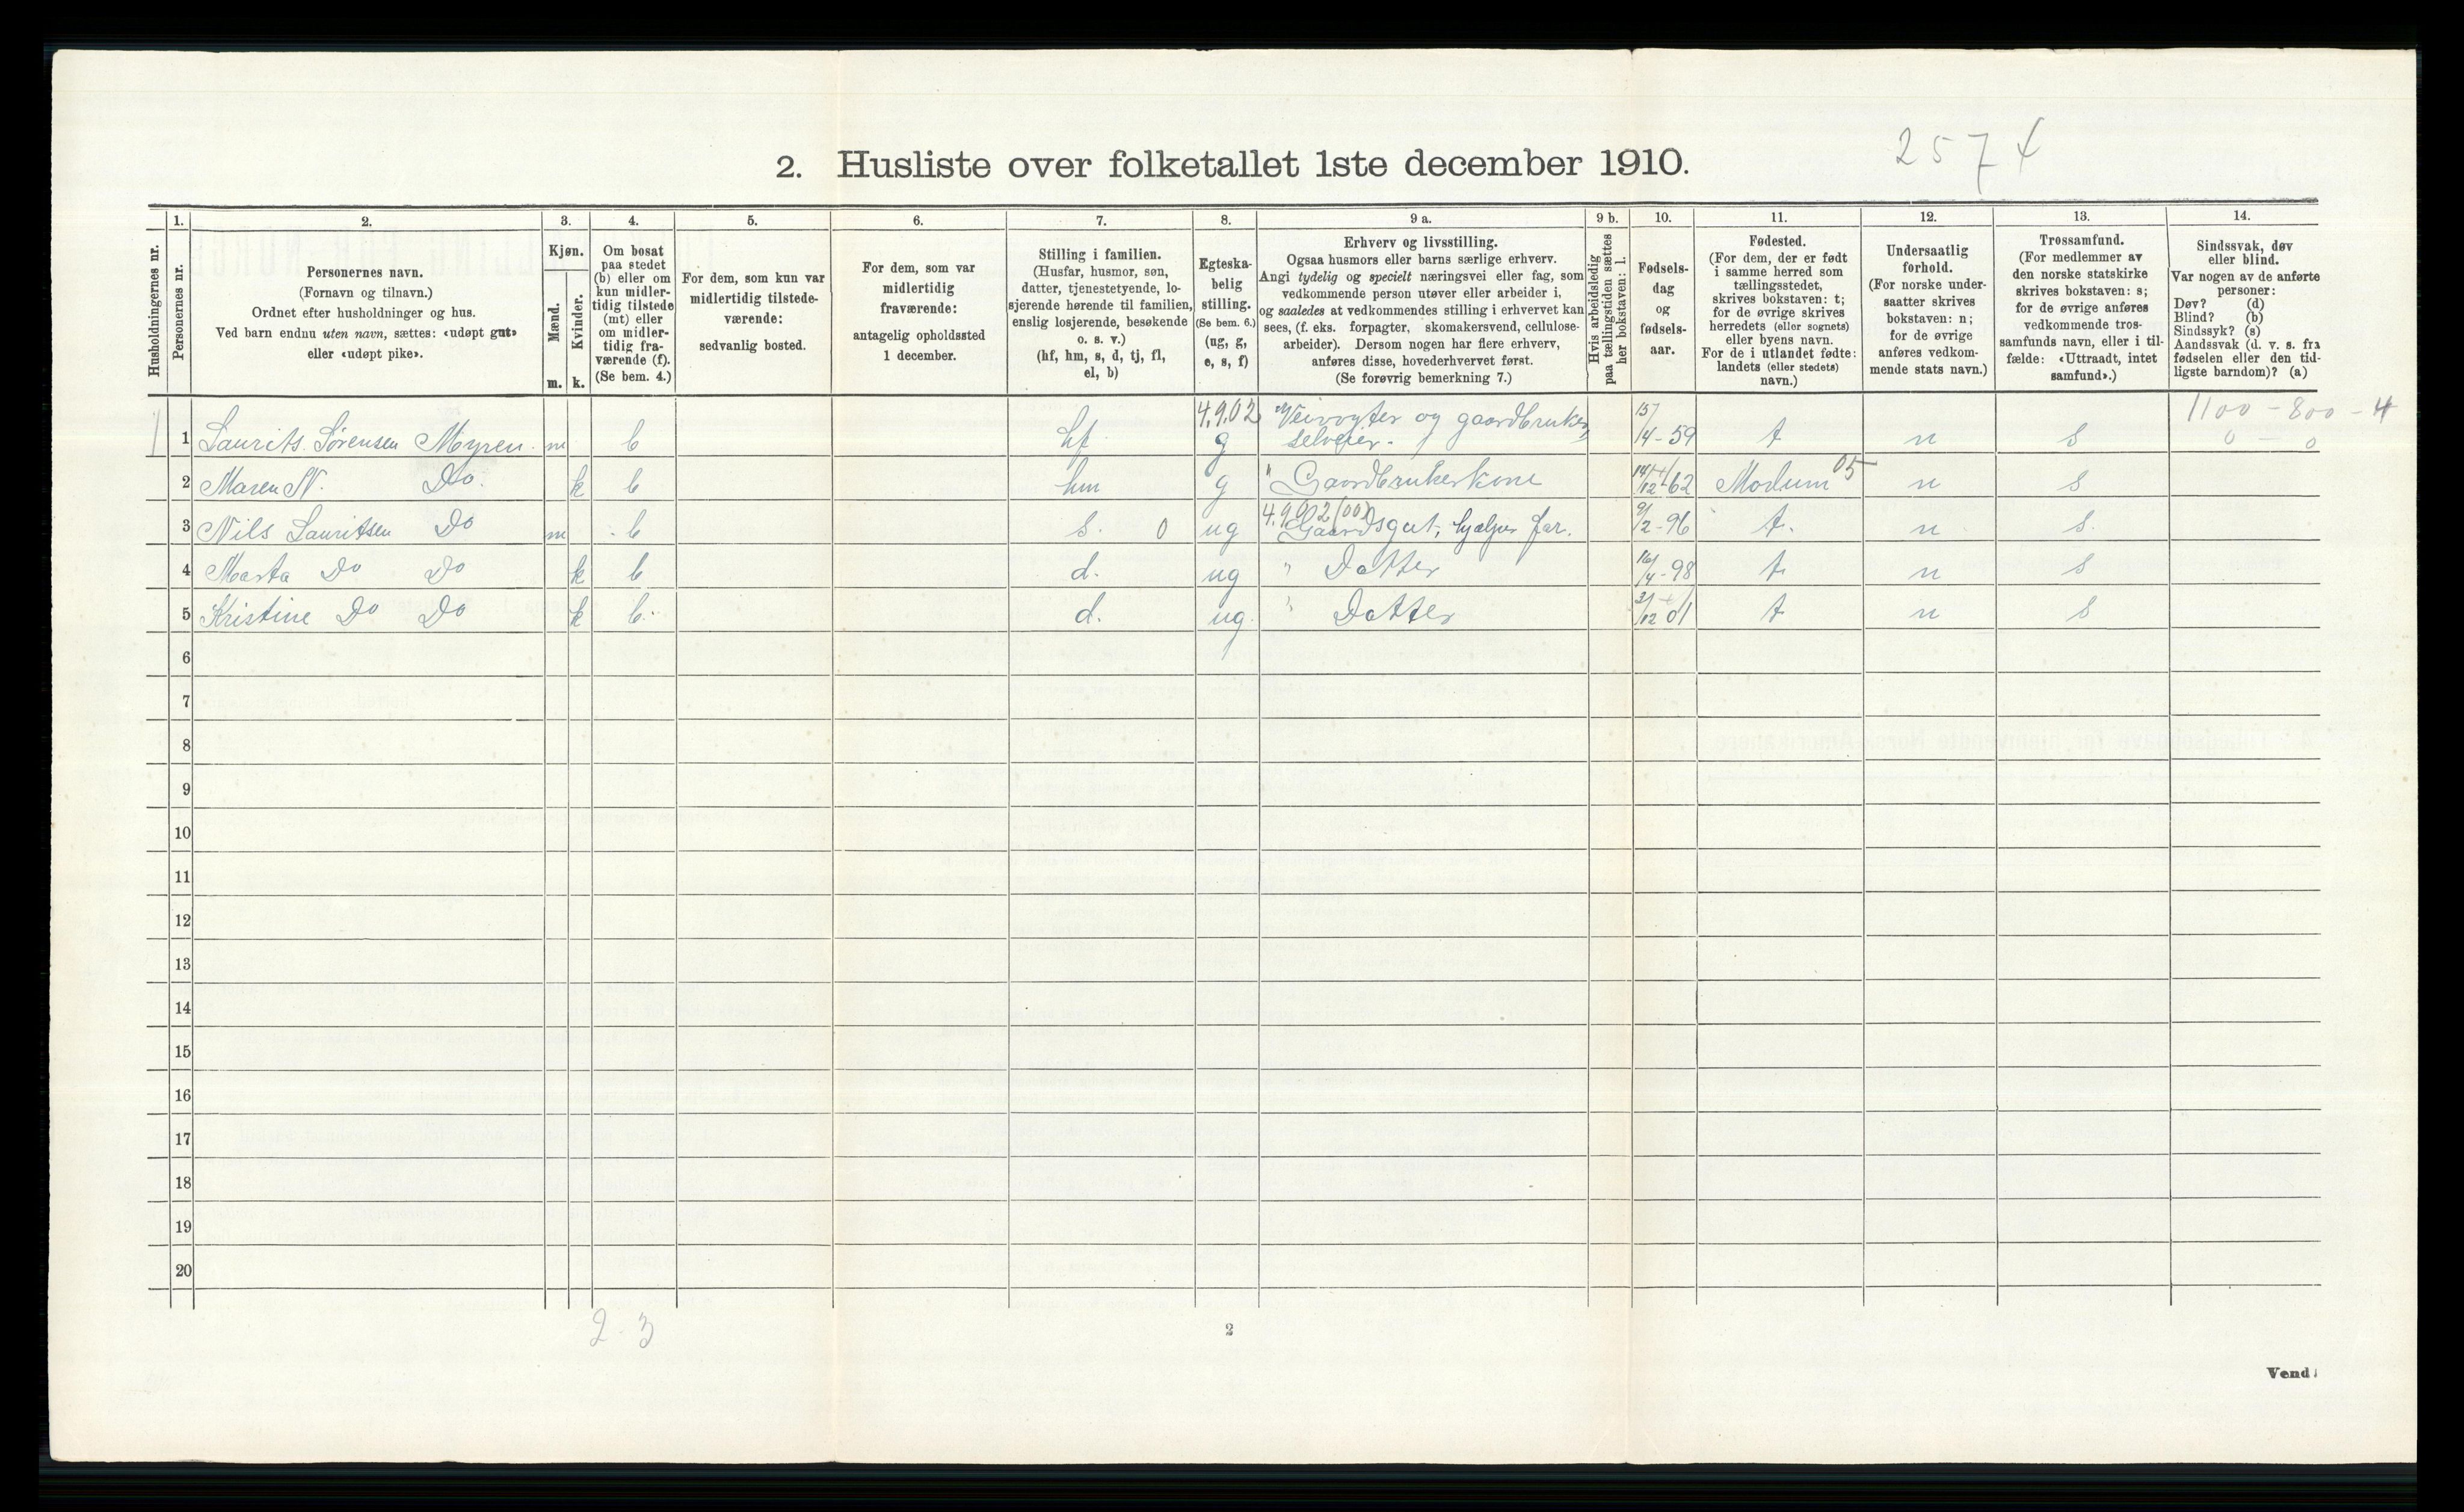 2574
2. Husliste over folketallet 1ste december 1910.
Husholdningernes nr.
1.
Personernes nr.
2.
Personernes navn.
(Fornavn og tilnavn.)
Ordnet efter husholdninger og hus.
Ved barn endnu uten navn, sættes: «udøpt gut»
eller «udøpt pike».
3.
Kjøn.
Mænd.
Kvinder.
m. k.
4.
Om bosat
paa stedet
(b) eller om
kun midler-
tidig tilstede
(mt) eller
om midler-
tidig fra-
værende (f).
(Se bem. 4.)
5.
For dem, som kun var
midlertidig tilstede-
værende:
sedvanlig bosted.
6.
For dem, som var
midlertidig
fraværende:
antagelig opholdssted
1 december.
7.
Stilling i familien.
(Husfar, husmor, søn,
datter, tjenestetyende, lo-
sjerende hørende til familien,
enslig losjerende, besøkende
o. s. v.)
(hf, hm, s, d, tj, fl,
el, b)
8.
Egteska-
belig
stilling.
(Se bem. 6.)
(ug, g,
e, s, f)
9 a.
Erhverv og livsstilling.
Ogsaa husmors eller barns særlige erhverv.
Angi tydelig og specielt næringsvei eller fag, som
vedkommende person utøver eller arbeider i,
og saaledes at vedkommendes stilling i erhvervet kan
sees, (f. eks. forpagter, skomakersvend, cellulose-
arbeider). Dersom nogen har flere erhverv,
anføres disse, hovederhvervet først.
(Se forøvrig bemerkning 7.)
9 b.
Hvis arbeidsledig
paa tællingstiden sættes
her bokstaven: l.
10.
Fødsels-
dag
og
fødsels-
aar.
11.
Fødested.
(For dem, der er født
i samme herred som
tællingsstedet,
skrives bokstaven: t;
for de øvrige skrives
herredets (eller sognets)
eller byens navn.
For de i utlandet fødte:
landets (eller stedets)
navn.)
12.
Undersaatlig
forhold.
(For norske under-
saatter skrives
bokstaven: n;
for de øvrige
anføres vedkom-
mende stats navn.)
13.
Trossamfund.
(For medlemmer av
den norske statskirke
skrives bokstaven: s;
for de øvrige anføres
vedkommende tros-
samfunds navn, eller i til-
fælde: «Uttraadt, intet
samfund».)
14.
Sindssvak, døv
eller blind.
Var nogen av de anførte
personer:
Døv? (d)
Blind? (b)
Sindssyk? (s)
Aandssvak (d. v. s. fra
fødselen eller den tid-
ligste barndom)? (a)
4.9.02 Veivogter og gaardbruker 15/ 1100 - 800 - 4
1 1 Laurits Sørensen Myren. m b hf g selveier. /4-59 t n s 0 - 0
2 Maren N. Do. k b hm g " Gaardbrukerkone 14/12 62 Modum 05 n s
4.9.02 (00)
3 Nils Lauritsen Do m b s. 0 ug Gaardsgut, hjælper far. 9/2-96 t. n s.
4 Marta Do Do k b d. ug " Datter 16/4-98 t. n s
5 Kristine Do Do k b. d. ug. " Datter 31/12 01 t n s
6
7
8
9
10
11
12
13
14
15
16
17
18
19
20
2. 3
2
Vend!